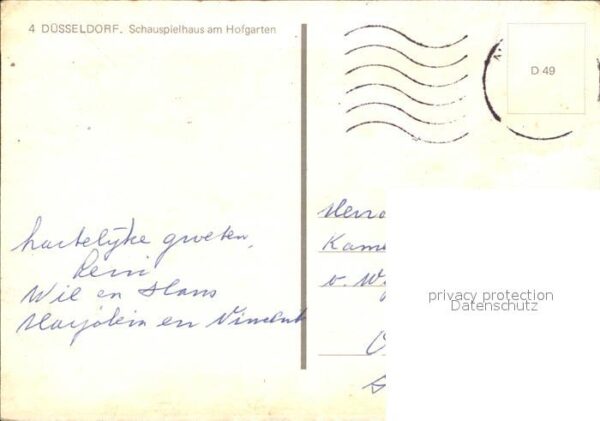 4 DÜSSELDORF. Schauspielhaus am Hofgarten
D 49
hartelijke groeten,
Reini
Wil en Hans
Marjolein en Vincent
privacy protection
Datenschutz